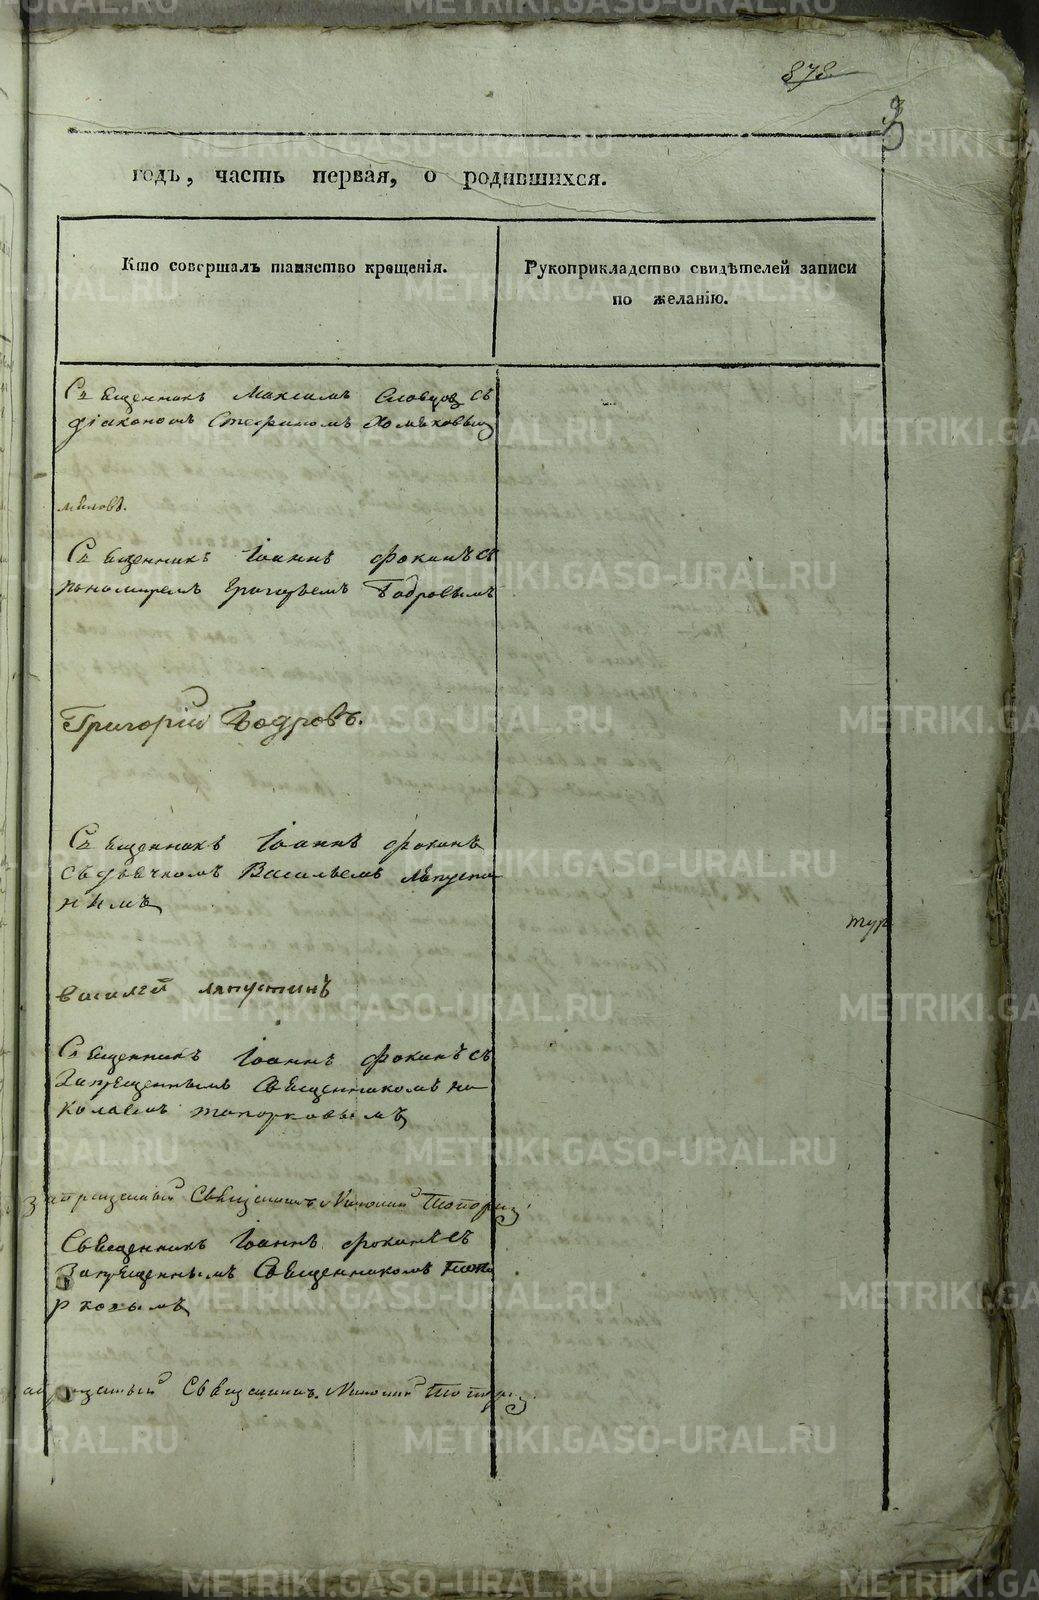 878
3
годъ, часть первая, о родившихся.
Кто совершалъ таинство крещенія.
Рукоприкладство свидѣтелей записи
по желанію.
Священникъ Максимъ Словцов съ
діакономъ Стефаномъ Хомяковым
Священникъ Іоаннъ Фокинъ съ
пономаремъ Григорьемъ Бодровымъ
Григорій Бодровъ.
Священникъ Іоаннъ Фокинъ
съ дьячкомъ Васильемъ Ляпусти-
нымъ
тур
василей ляпустинъ
Священникъ Іоаннъ Фокинъ съ
Запрещеннымъ Священникомъ Ни-
колаемъ топорковымъ
запрещенный Священникъ Николай Топорк
Священникъ Іоаннъ Фокинъ съ
Запрещеннымъ Священникомъ Топо
рковымъ
запрещенный Священникъ Николай Топорк
METRIKI.GASO-URAL.RU